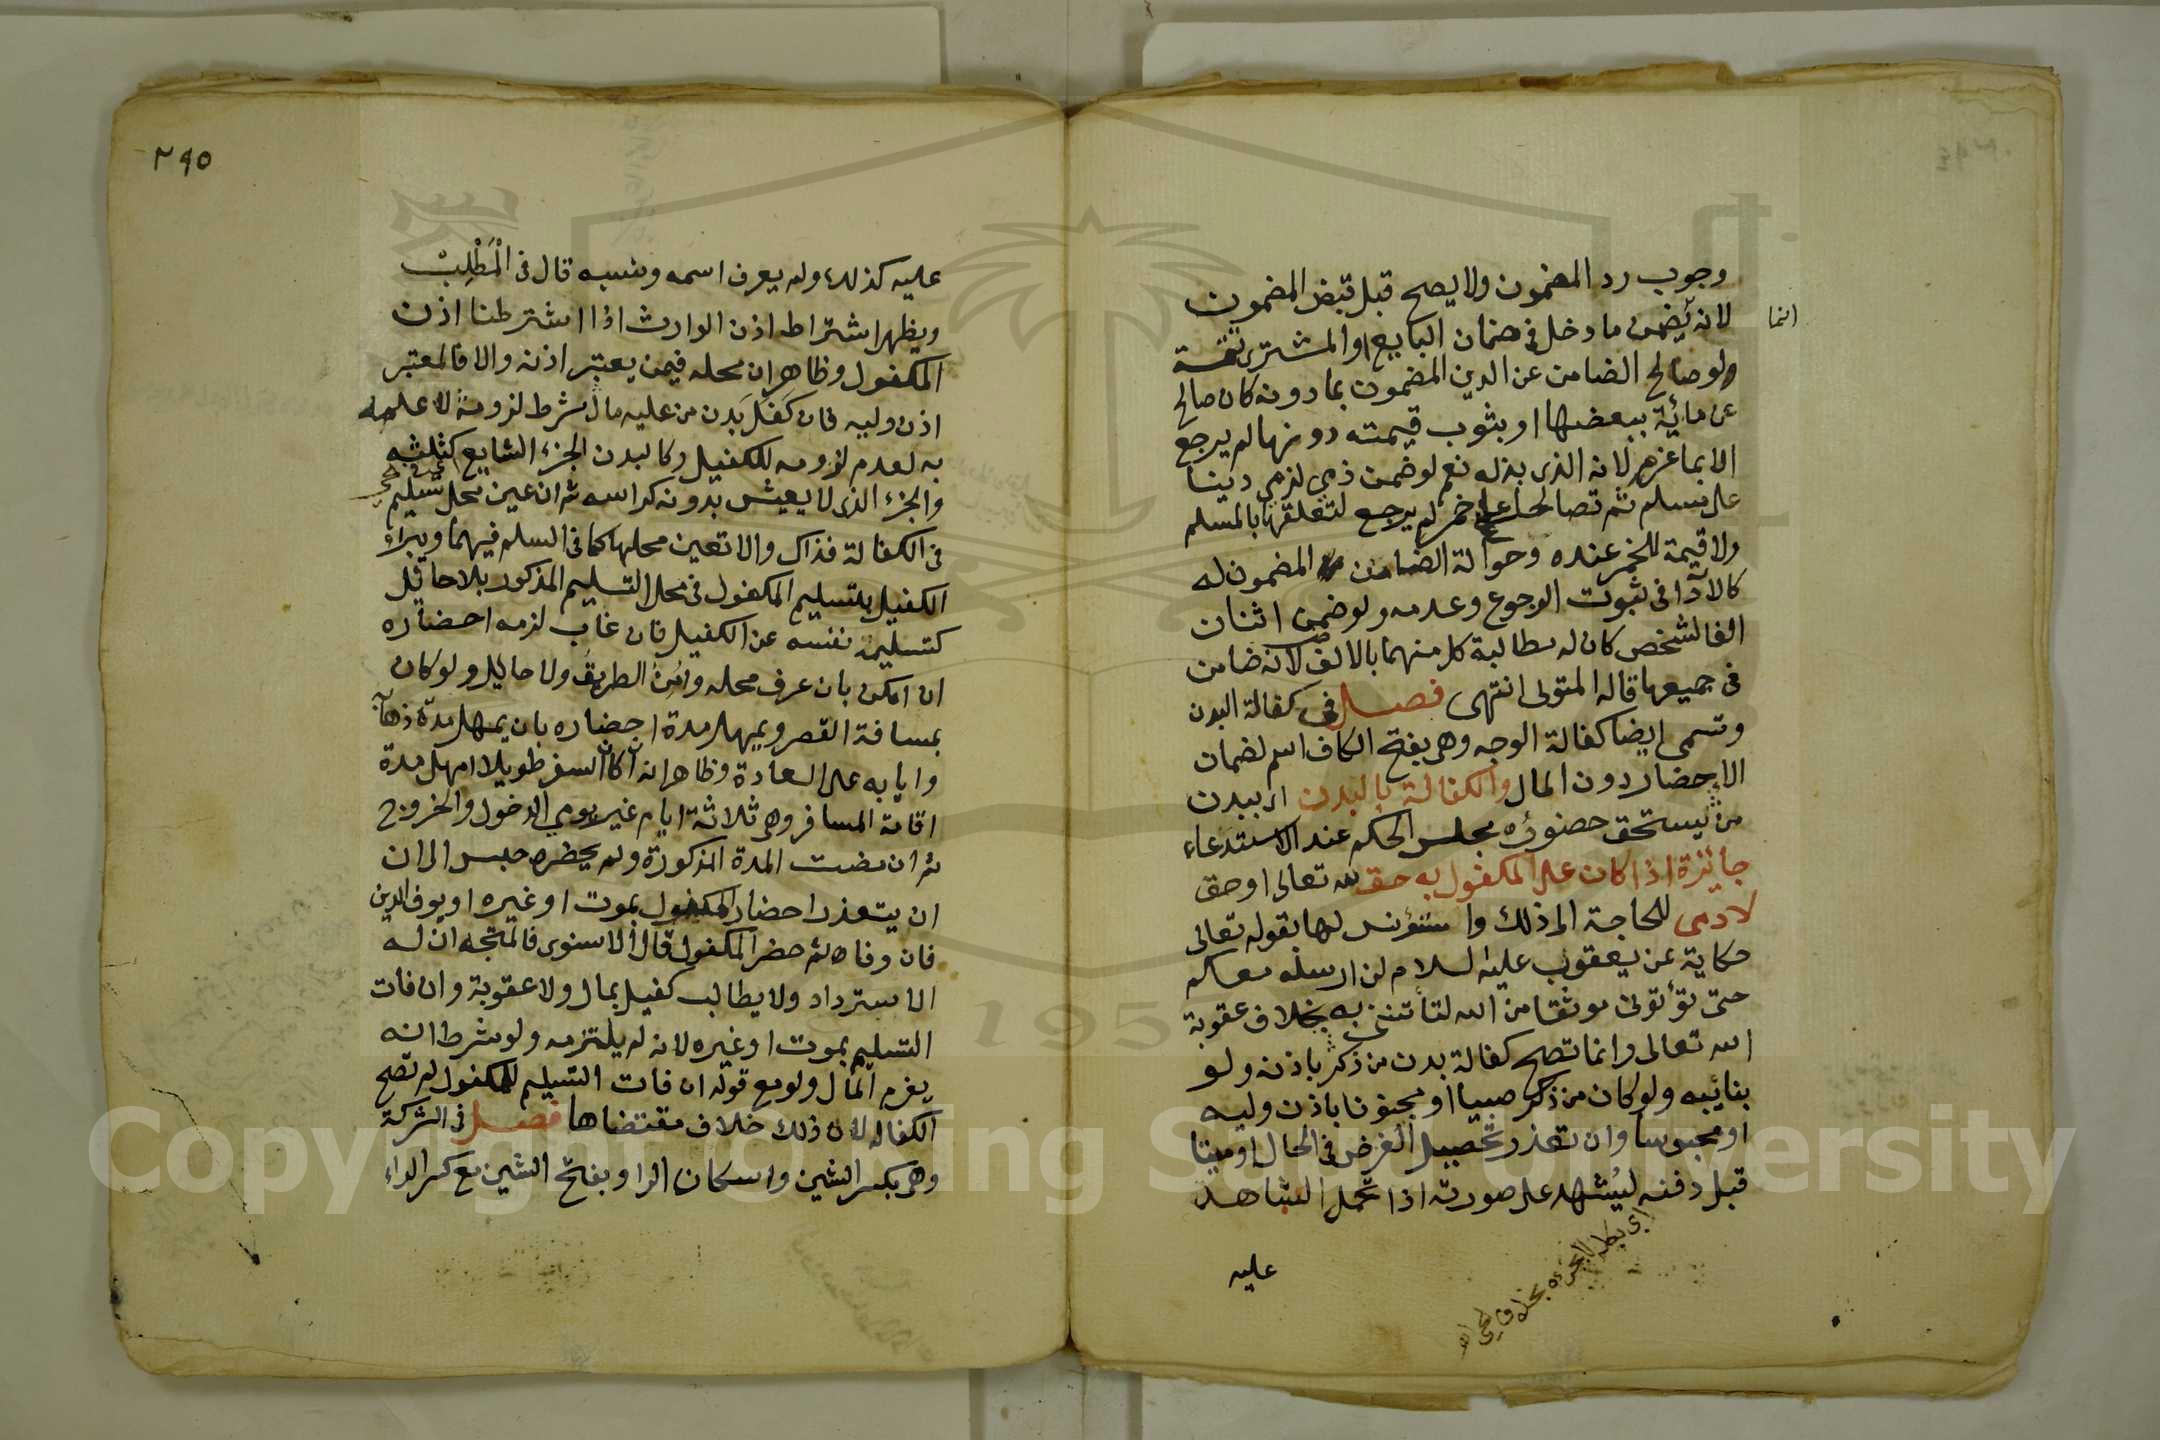 وجوب رد المضمون ولا يصح قبل قبض المضمون
لانه يضمن ما دخل في ضمان البايع او المشتري تتمة
انما
ولو صالح الضامن عن الدين المضمون بما دونه كان صالح
عن مائة ببعضها او بثوب قيمته دونها لم يرجع
الا بما غرم لانه الذي بذله نعم لو ضمن ذمي لذمي دينا
على مسلم ثم تصالحا على خمر لم يرجع لتعلقها بالمسلم
ولا قيمة للخمر عنده وحوالة الضامن المضمون له
كالادآ في ثبوت الرجوع وعدمه ولو ضمن اثنان
الفا لشخص كان له مطالبة كل منهما بالالف لانه ضامن
في جميعها قاله المتولى انتهى فصل في كفالة البدن
وتسمى ايضا كفالة الوجه وهي بفتح الكاف اسم لضمان
الاحضار دون المال والكفالة بالبدن اي ببدن
من يستحق حضوره مجلس الحكم عند الاستدعاء
جائزة اذا كان على المكفول به حق لله تعالى او حق
لادمى للحاجة الى ذلك واستؤنس لها بقوله تعالى
حكاية عن يعقوب عليه السلام لن ارسله معكم
حتى تؤتون موثقا من الله لتأتنني به بخلاف عقوبة
الله تعالى وانما تصح كفالة بدن من ذكر باذنه ولو
بنائبه ولو كان من ذكر صبيا او مجنونا باذن وليه
او محبوسا وان تعذر تحصيل الغرض في الحال او ميتا
قبل دفنه ليشهد على صورته اذا تحمل الشاهد
عليه
٢٩٥
عليه كذلك ولم يعرف اسمه ونسبه قال في المطلب
ويظهر اشتراط اذن الوارث اذا اشترطنا اذن
المكفول وظاهر ان محله فيمن يعتبر اذنه والا فالمعتبر
اذن وليه فان كفل بدن من عليه مال شرط لزومه لا علمه
به لعدم لزومه للكفيل وكالبدن الجزء الشايع كثلثه
والجزء الذي لا يعيش بدونه كراسه ثم ان عين محل تسليم
في الكفالة فذاك والا تعين محلها كما في السلم فيهما ويبراء
الكفيل بتسليم المكفول في محل التسليم المذكور بلا حائل
كتسليمه نفسه عن الكفيل فان غاب لزمه احضاره
ان امكن بان عرف محله وامن الطريق ولا حايل ولو كان
بمسافة القصر ويمهل مدة احضاره بان يمهل مدة ذهابه
وايابه على العادة وظاهر انه ان كان السفر طويلا امهل مدة
اقامة المسافر وهي ثلاثة ايام غير يومي الدخول والخروج
ثم ان مضت المدة المذكورة ولم يحضره حبس الى ان
ان يتعذر احضار المكفول بموت او غيره او يوفي الدين
فان وفاه ثم حضر المكفول قال الاسنوى فالمتجه ان له
الاسترداد ولا يطالب كفيل بمال ولا عقوبة وان فات
التسليم بموت او غيره لانه لم يلتزمه ولو شرط انه
يغرم المال ولو مع قوله ان فات التسليم للمكفول لم تصح
الكفالة لان ذلك خلاف مقتضاها فصل في الشركة
وهي بكسر الشين واسكان الرا وبفتح الشين مع كسر الراء
Copyright © King Saud University
195